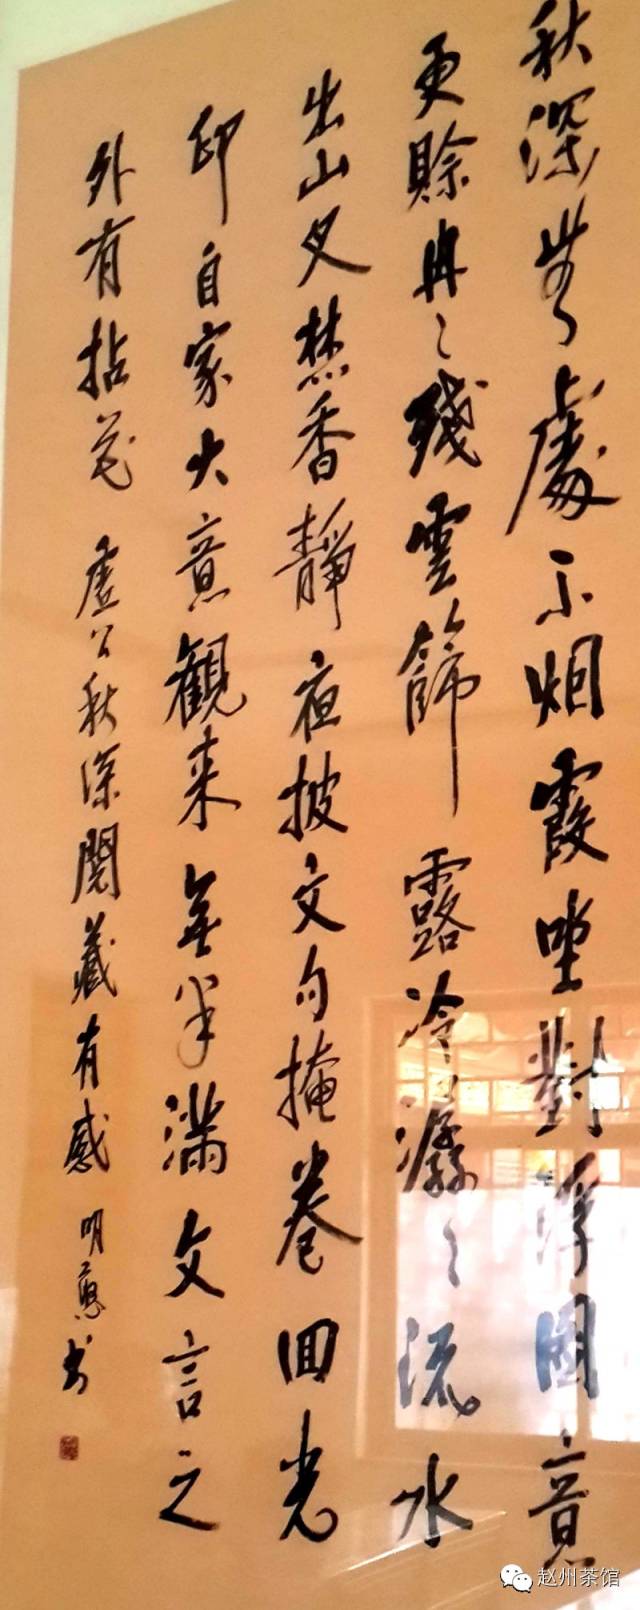 秋深處烟霞坐對浮圖意
更賒冉々殘雲篩露冷潺々流水
出山叉焚香靜夜披文句掩卷回光
印自家大意観来無半滿文言之
外有拈花 虛公秋深閱藏有感 明书
赵州茶馆